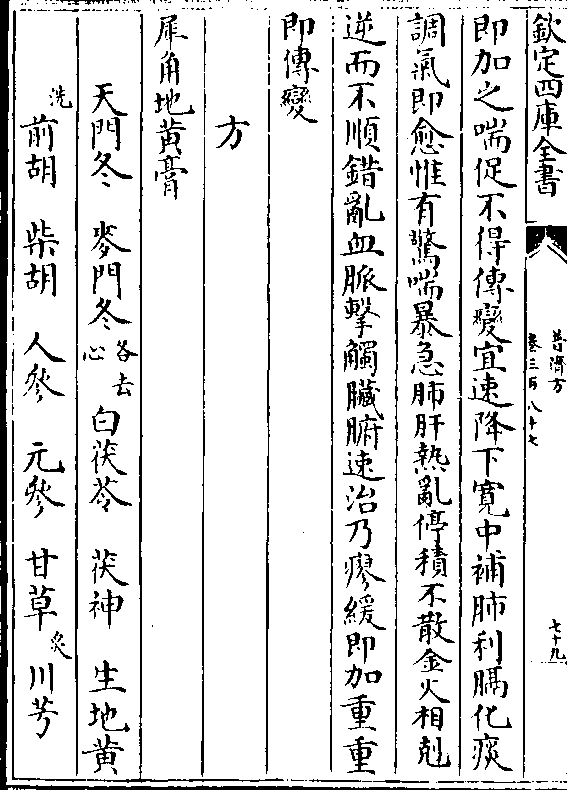 欽定四庫全書
普濟方
卷三百八十七
七十九
即加之喘促不得傳變宜速降下寛中補肺利膈化痰
調氣即愈惟有驚喘暴急肺肝熱亂停積不散金火相剋
逆而不順錯亂血脈擊觸臟腑速治乃瘳緩即加重重
即傳變
方
犀角地黄膏
天門冬 麥門冬各去心 白茯苓 茯神 生地黄
洗前胡 柴胡 人參 元參 甘草炙 川芎